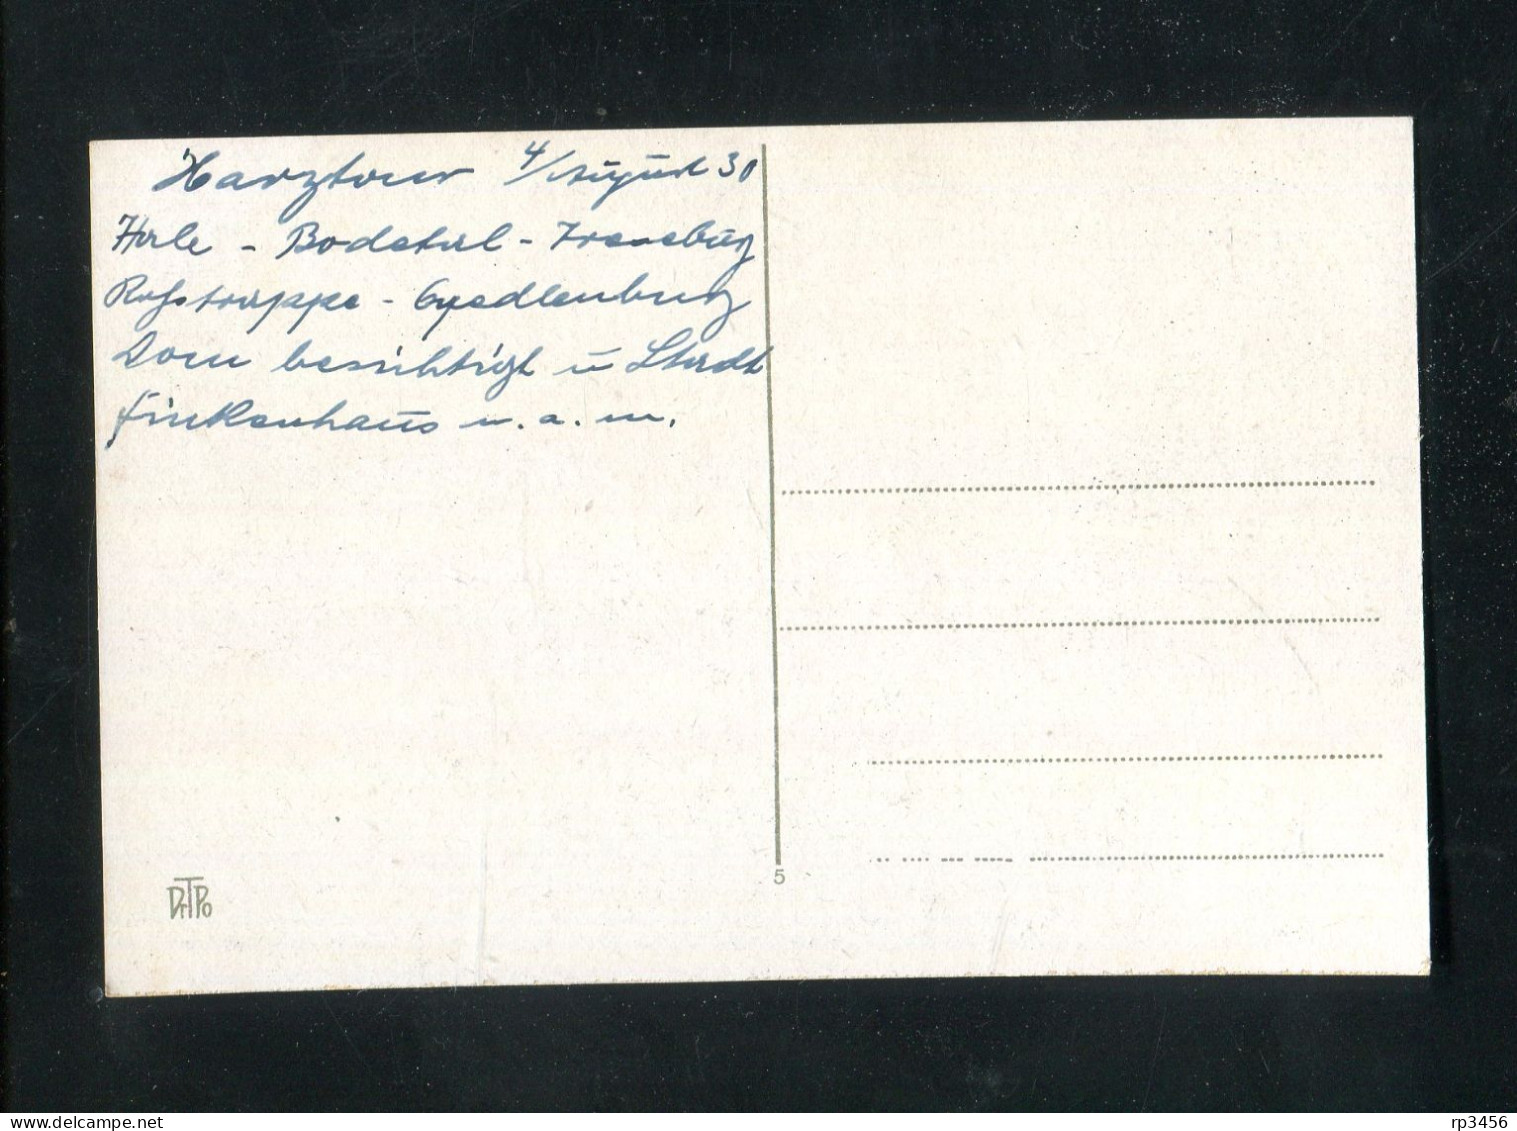 Harztour 4/August 30
Thale - Bodetal - Treseburg
Roßtrappe - Quedlenburg
Dom besichtigt u Stadt
Finkenhaus u. a. m.
5
DrTPo
delcampe.net
rp3456